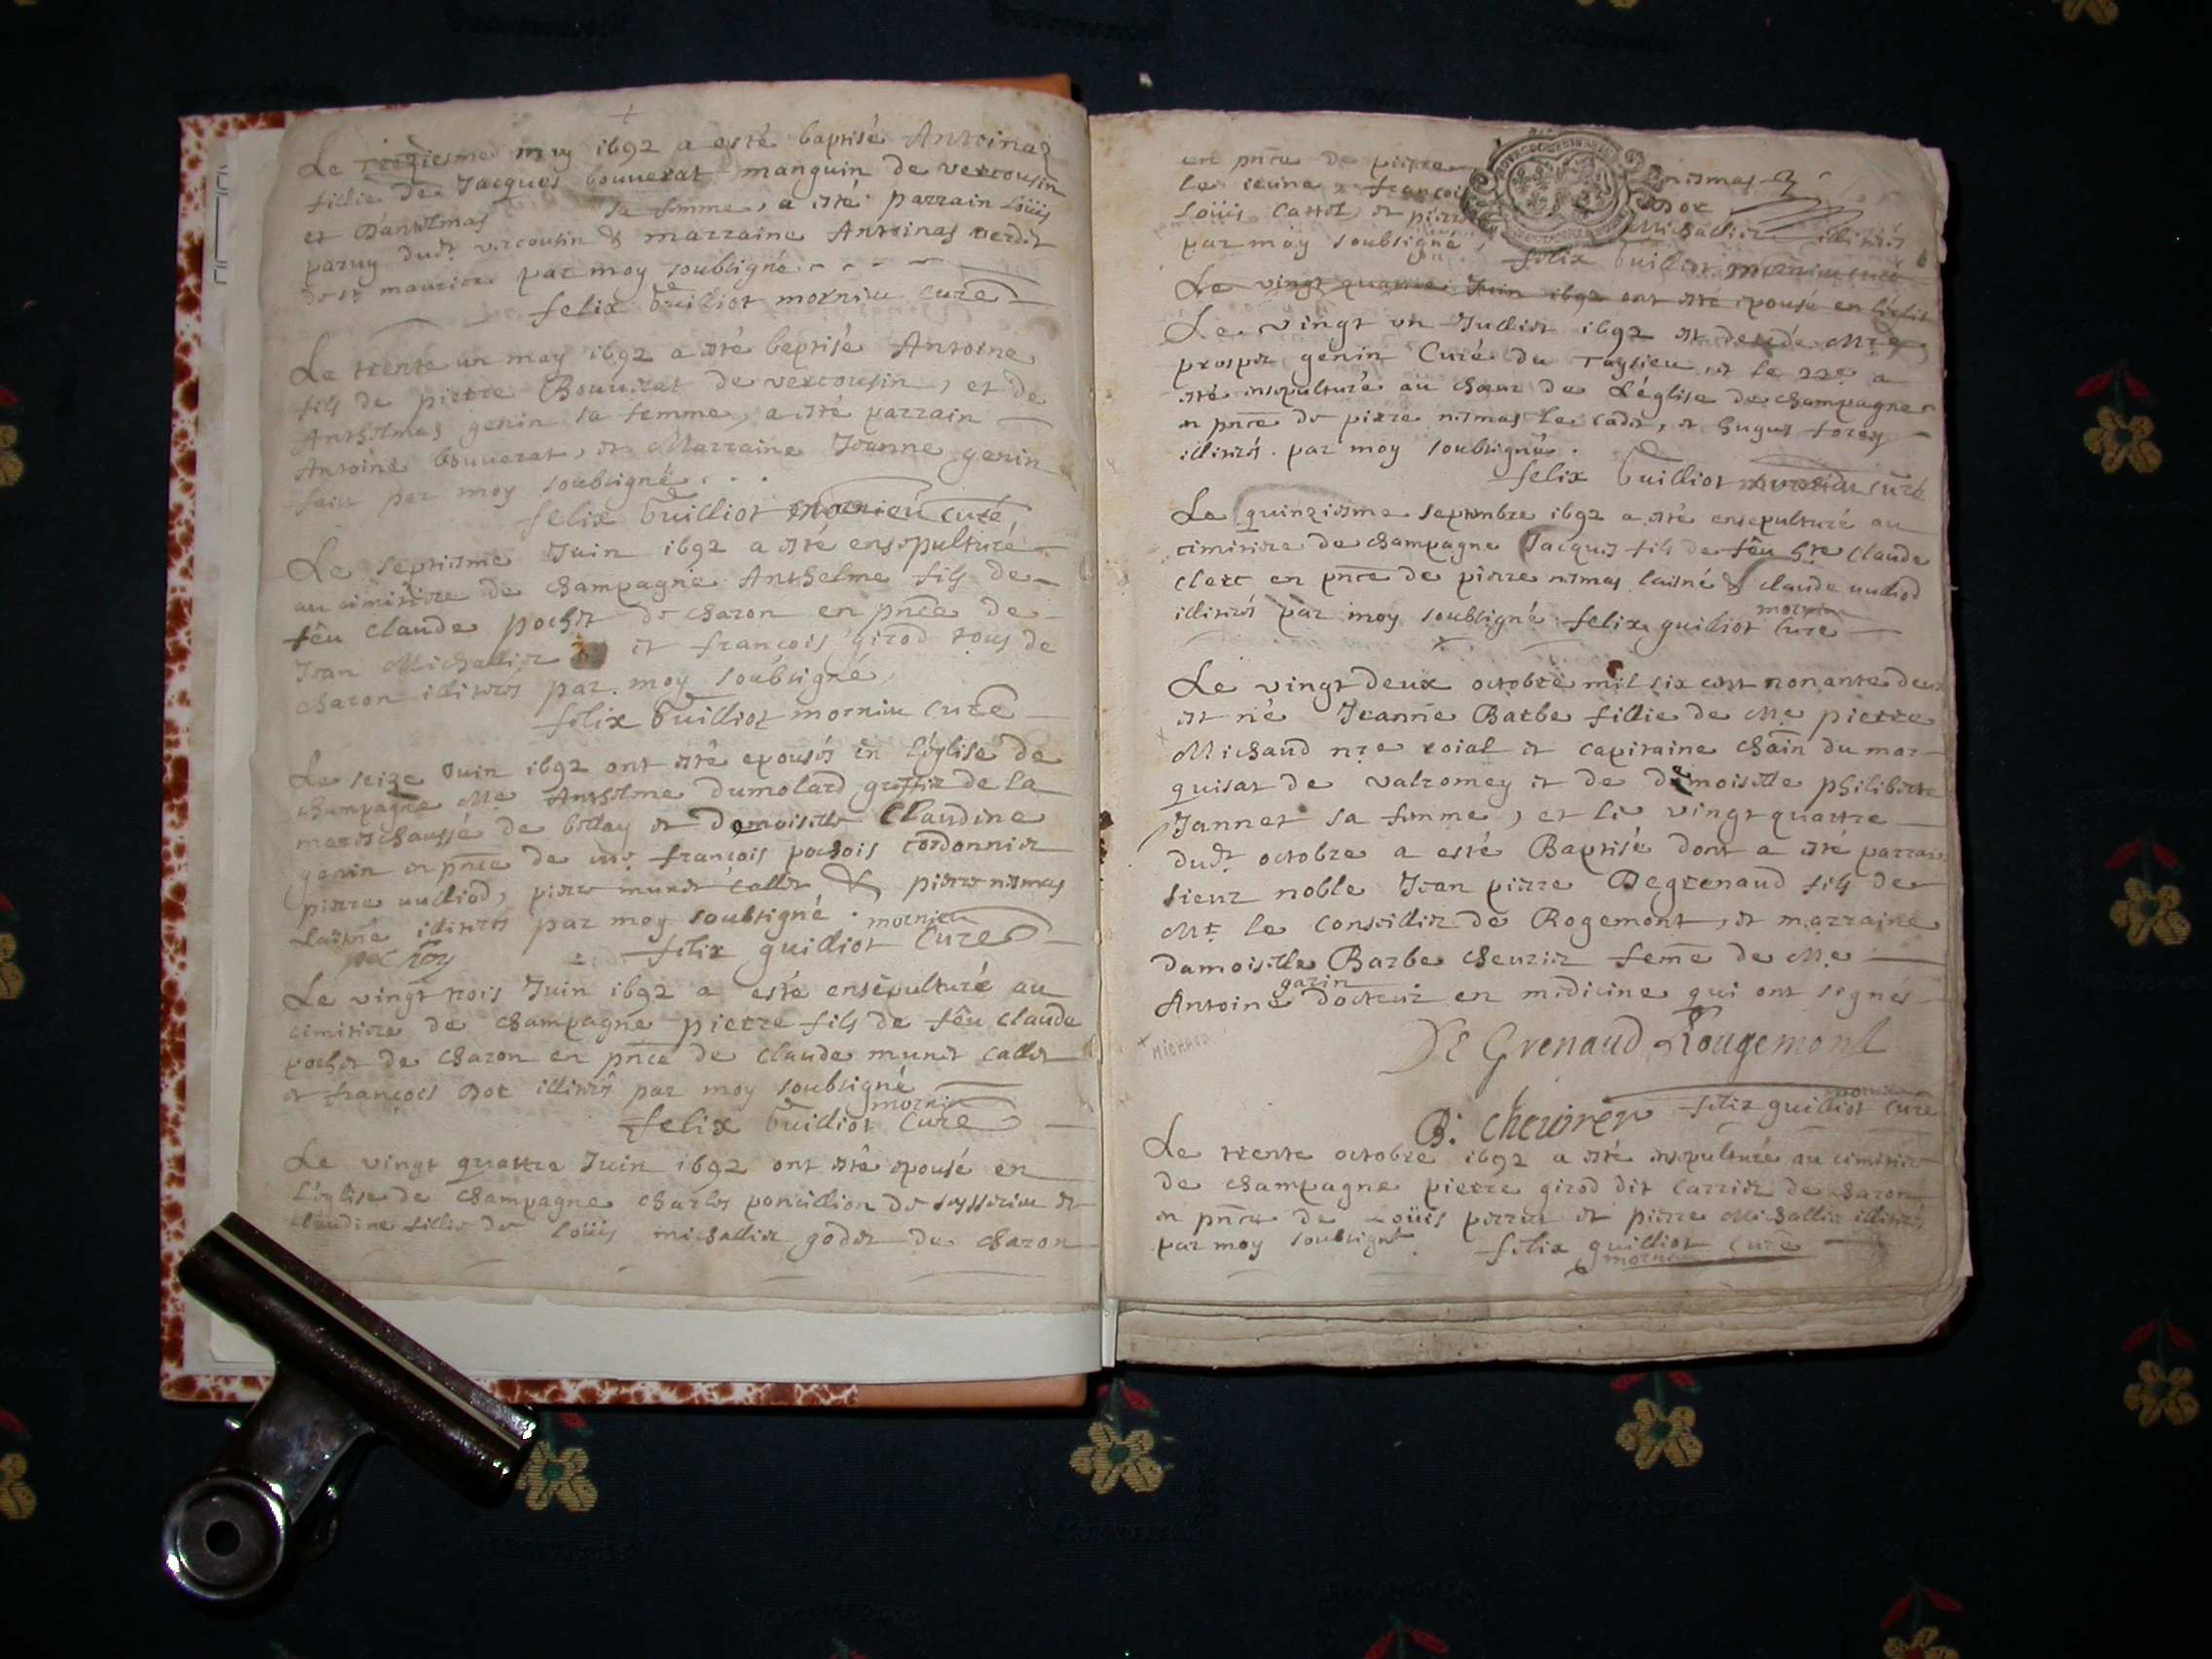 Le troiziesme may 1692 a esté baptisé Antoinaz
fillie de Jacques bouuerat manguin de vercousin
et D'antelmas sa femme, a esté parrain Loüis
paruy dudt vercousin & marraine Antoinas verdet
de st maurice par moy soubsigné
felix Guilliot mornieu curé
Le trente un may 1692 a esté baptisé Antoine
fils de pierre Bouuerat de vercousin, et de
Anthelmas genin sa femme, a esté parrain
Antoine bouuerat, et Marraine Jeanne genin
fait par moy soubsigné
felix Guilliot mornieu curé
Le septiesme Juin 1692 a esté ensepulturé
au cimitiere de champagne Anthelme fils de
feu Claude pochet de charon en pnce de
Jean Michallier et françois girod tous de
charon illiterés par moy soubsigné
felix Guilliot mornieu curé
Le seize Juin 1692 ont esté epousés en L'église de
champagne Me Anthelme Dumolard greffier de la
mareschaussé de bellay et Demoiselle Claudine
genin en pnce de françois pochois cordonnier
pierre uulliod, pierre munet callet & pierre nesmes
Laisné illiterés par moy soubsigné mornieu
felix guilliot Curé
Le vingt trois Juin 1692 a esté ensepulturé au
cimitiere de champagne pierre fils de feu Claude
pochet de charon en pnce de Claude munet callet
et françois Dot illiterés par moy soubsigné
mornieu
felix Guilliot Curé
Le vingt quattre Juin 1692 ont esté epousé en
L'église de champagne Charles poncillion de seyssirieu et
claudine fillie de Loüis michallier godet de charon
en pnce de pierre nesmas
le jeune françois Dot
Loüis Cattet, et pierre Michallier illiterés
par moy soubsigné,
felix Guilliot mornieu curé
Le vingt quattre Juin 1692 ont esté epousé en L'église
Le vingt un Juillet 1692 est decedé Mre
prosper genin Curé du Taysieu, et le 22e a
esté insepulturé au chœur de L'église de champagne
en pnce de pierre nesmas Le cadet, et hugues forey
illiterés par moy soubsigné
felix Guilliot mornieu curé
Le quinziesme septembre 1692 a esté ensepulturé au
cimitiere de champagne Jacques fils de feu hre Claude
Clerc en pnce de pierre nesmas laisné & claude uulliod
illiterés par moy soubsigné felix guilliot mornieu Curé
Le vingt deux octobre mil six cent nonante deux
est né Jeanne Barbe fillie de Me pierre
Michaud nre roial et capitaine chain du mar-
quisat de valromey et de demoiselle philiberte
Jannet sa femme, et le vingt quattre
dudt octobre a esté Baptisé dont a esté parrain
sieur noble Jean pierre Degrenaud fils de
Mr le Conseillier de Rogemont, et marraine
damoiselle Barbe cheurier feme de Me
Antoine garin docteur en medicine qui ont signés
MICHAUD
De Grenaud Rougemont
B: cheurier felix guilliot mornieu Curé
Le trente octobre 1692 a esté insepulturé au cimitiere
de champagne pierre girod dit carrier de charon
en pnce de Loüis perret et pierre Michallier illiterés
par moy soubsigné felix guilliot curé
mornieu